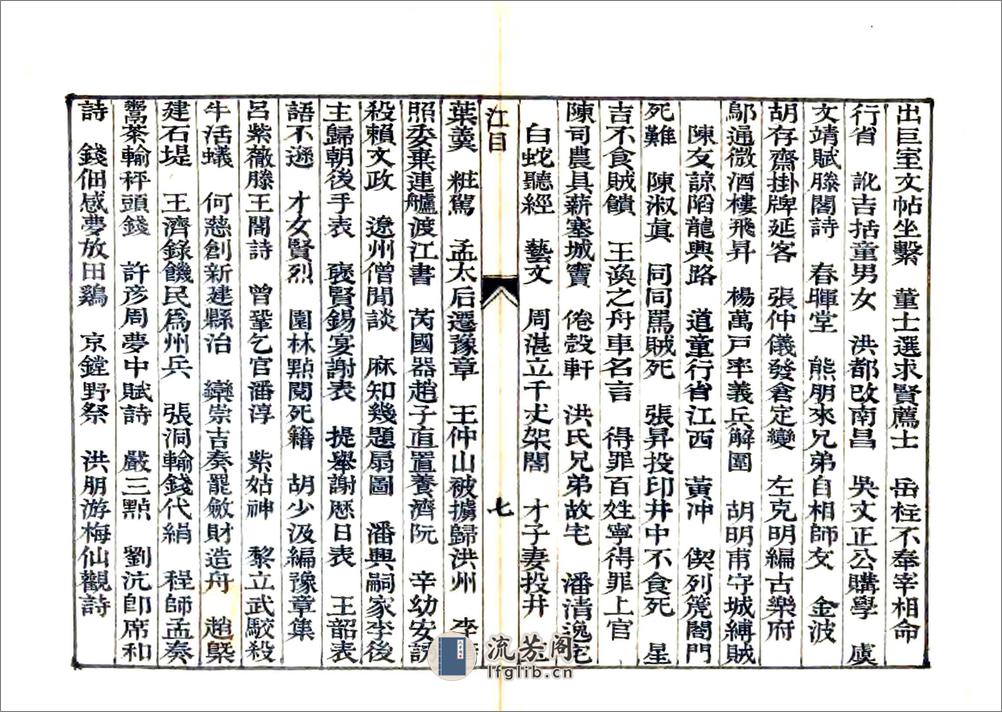 出巨室文帖坐繫　董士選求賢薦士　岳柱不奉宰相命
行省　訛言括童男女　洪都改南昌　吳文正公購學　虞
文靖賦滕閣詩　春暉堂　熊朋來兄弟自相師友　金波
胡存齋掛牌延客　張仲儀發倉定變　左克明編古樂府
鄔通微酒樓飛昇　楊萬戸率義兵解圍　胡明甫守城縛賊
陳友諒陷龍興路　道童行省江西　黃沖　偰列篪閣門
死難　陳淑眞　同同罵賊死　張昇投印井中不食死　星
吉不食賊饋　王渙之舟車名言　得罪百姓寧得罪上官
陳司農具薪塞城竇　倦殼軒　洪氏兄弟故宅　潘清逸宅
白蛇聽經　藝文　周湛立千丈架閣　才子妻投井
江目
七
葉羹　粧駡　孟太后遷豫章　王仲山被擄歸洪州　李
照委棄連艫渡江書　芮國器趙子直置養濟院　辛幼安誘
殺賴文政　遼州僧聞談　麻知幾題扇圖　潘興嗣家李後
主歸朝後手表　褒賢錫宴謝表　提舉謝曆日表　王韶表
語不遜　才女賢烈　園林點閱死籍　胡少汲編豫章集
呂紫薇滕王閣詩　曾鞏乞官潘淳　紫姑神　黎立武駮殺
牛活蟻　何慈創新建縣治　欒崇吉奏罷斂財造舟　趙㮣
建石堤　王濟錄饑民爲州兵　張洞輸錢代絹　程師孟奏
鬻茶輸秤頭錢　許彥周夢中賦詩　嚴三點　劉沆卽席和
詩　錢佃感夢放田鷄　京鏜野祭　洪朋游梅仙觀詩
流芳阁
lfglib.cn